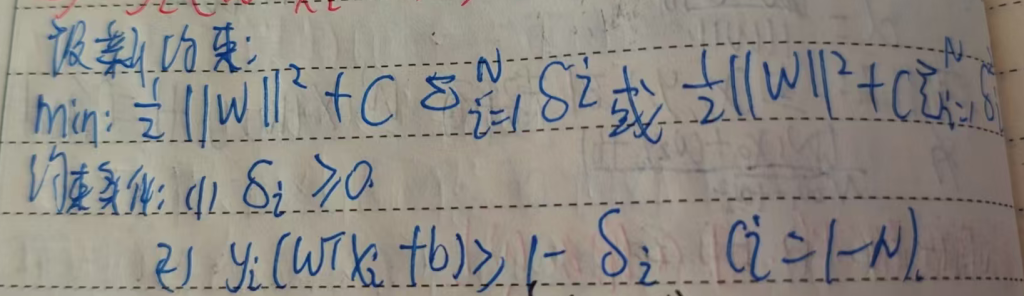 约束:
min: 1/2 ||W||² + C Σ_{i=1}^{N} δi 或 1/2 ||W||² + C Σ_{i=1}^{N} δi²
约束条件: (1) δi ≥ 0.
(2) yi(WTXi + b) ≥ 1 - δi (i = 1-N).